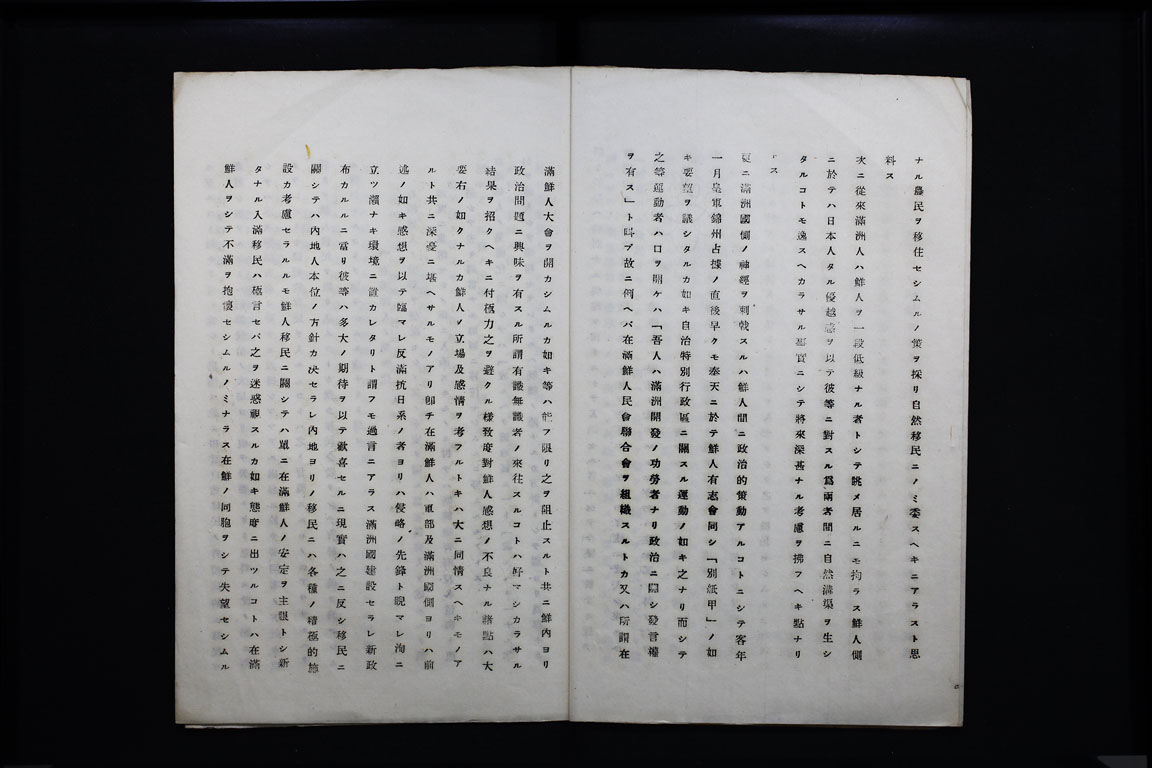 ナル農民ヲ移住セシムルノ策ヲ採リ自然移民ニノミ委スヘキニアラスト思
料ス
次ニ從來滿洲人ハ鮮人ヲ一段低級ナル者トシテ眺メ居ルニモ拘ラス鮮人側
ニ於テハ日本人タル優越感ヲ以テ彼等ニ對スル爲兩者間ニ自然溝渠ヲ生シ
タルコトモ逸スヘカラサル事實ニシテ將來深甚ナル考慮ヲ拂フヘキ點ナリ
トス
更ニ滿洲國側ノ神經ヲ刺戟スルハ鮮人間ニ政治的策動アルコトニシテ客年
一月皇軍錦州占據ノ直後早クモ奉天ニ於テ鮮人有志會同シ「別紙甲」ノ如
キ要望ヲ議シタルカ如キ自治特別行政區ニ關スル運動ノ如キ之ナリ而シテ
之等運動者ハ口ヲ開ケハ「吾人ハ滿洲開發ノ功勞者ナリ政治ニ關シ發言權
ヲ有ス」ト叫ブ故ニ例ヘバ在滿鮮人民會聯合會ヲ組織スルトカ又ハ所謂在
滿鮮人大會ヲ開カシムルカ如キ等ハ能フ限リ之ヲ阻止スルト共ニ鮮內ヨリ
政治問題ニ興味ヲ有スル所謂有識無識者ノ來往スルコトハ好マシカラサル
結果ヲ招クヘキニ付極力之ヲ避クル樣致度對鮮人感想ノ不良ナル諸點ハ大
要右ノ如クナルカ鮮人ノ立場及感情ヲ考フルトキハ大ニ同情スヘキモノア
ルト共ニ深憂ニ堪ヘサルモノアリ卽チ在滿鮮人ハ軍部及滿洲國側ヨリハ前
述ノ如キ感想ヲ以テ臨マレ反滿抗日系ノ者ヨリハ侵略ノ先鋒ト睨マレ洵ニ
立ツ瀨ナキ環境ニ置カレタリト謂フモ過言ニアラス滿洲國建設セラレ新政
布カルルニ當リ彼等ハ多大ノ期待ヲ以テ歡喜セルニ現實ハ之ニ反シ移民ニ
關シテハ內地人本位ノ方針カ決セラレ內地ヨリノ移民ニハ各種ノ積極的施
設カ考慮セラルルモ鮮人移民ニ關シテハ單ニ在滿鮮人ノ安定ヲ主眼トシ新
タナル入滿移民ハ極言セバ之ヲ迷惑視スルカ如キ態度ニ出ツルコトハ在滿
鮮人ヲシテ不滿ヲ抱懷セシムルノミナラス在鮮ノ同胞ヲシテ失望セシムル